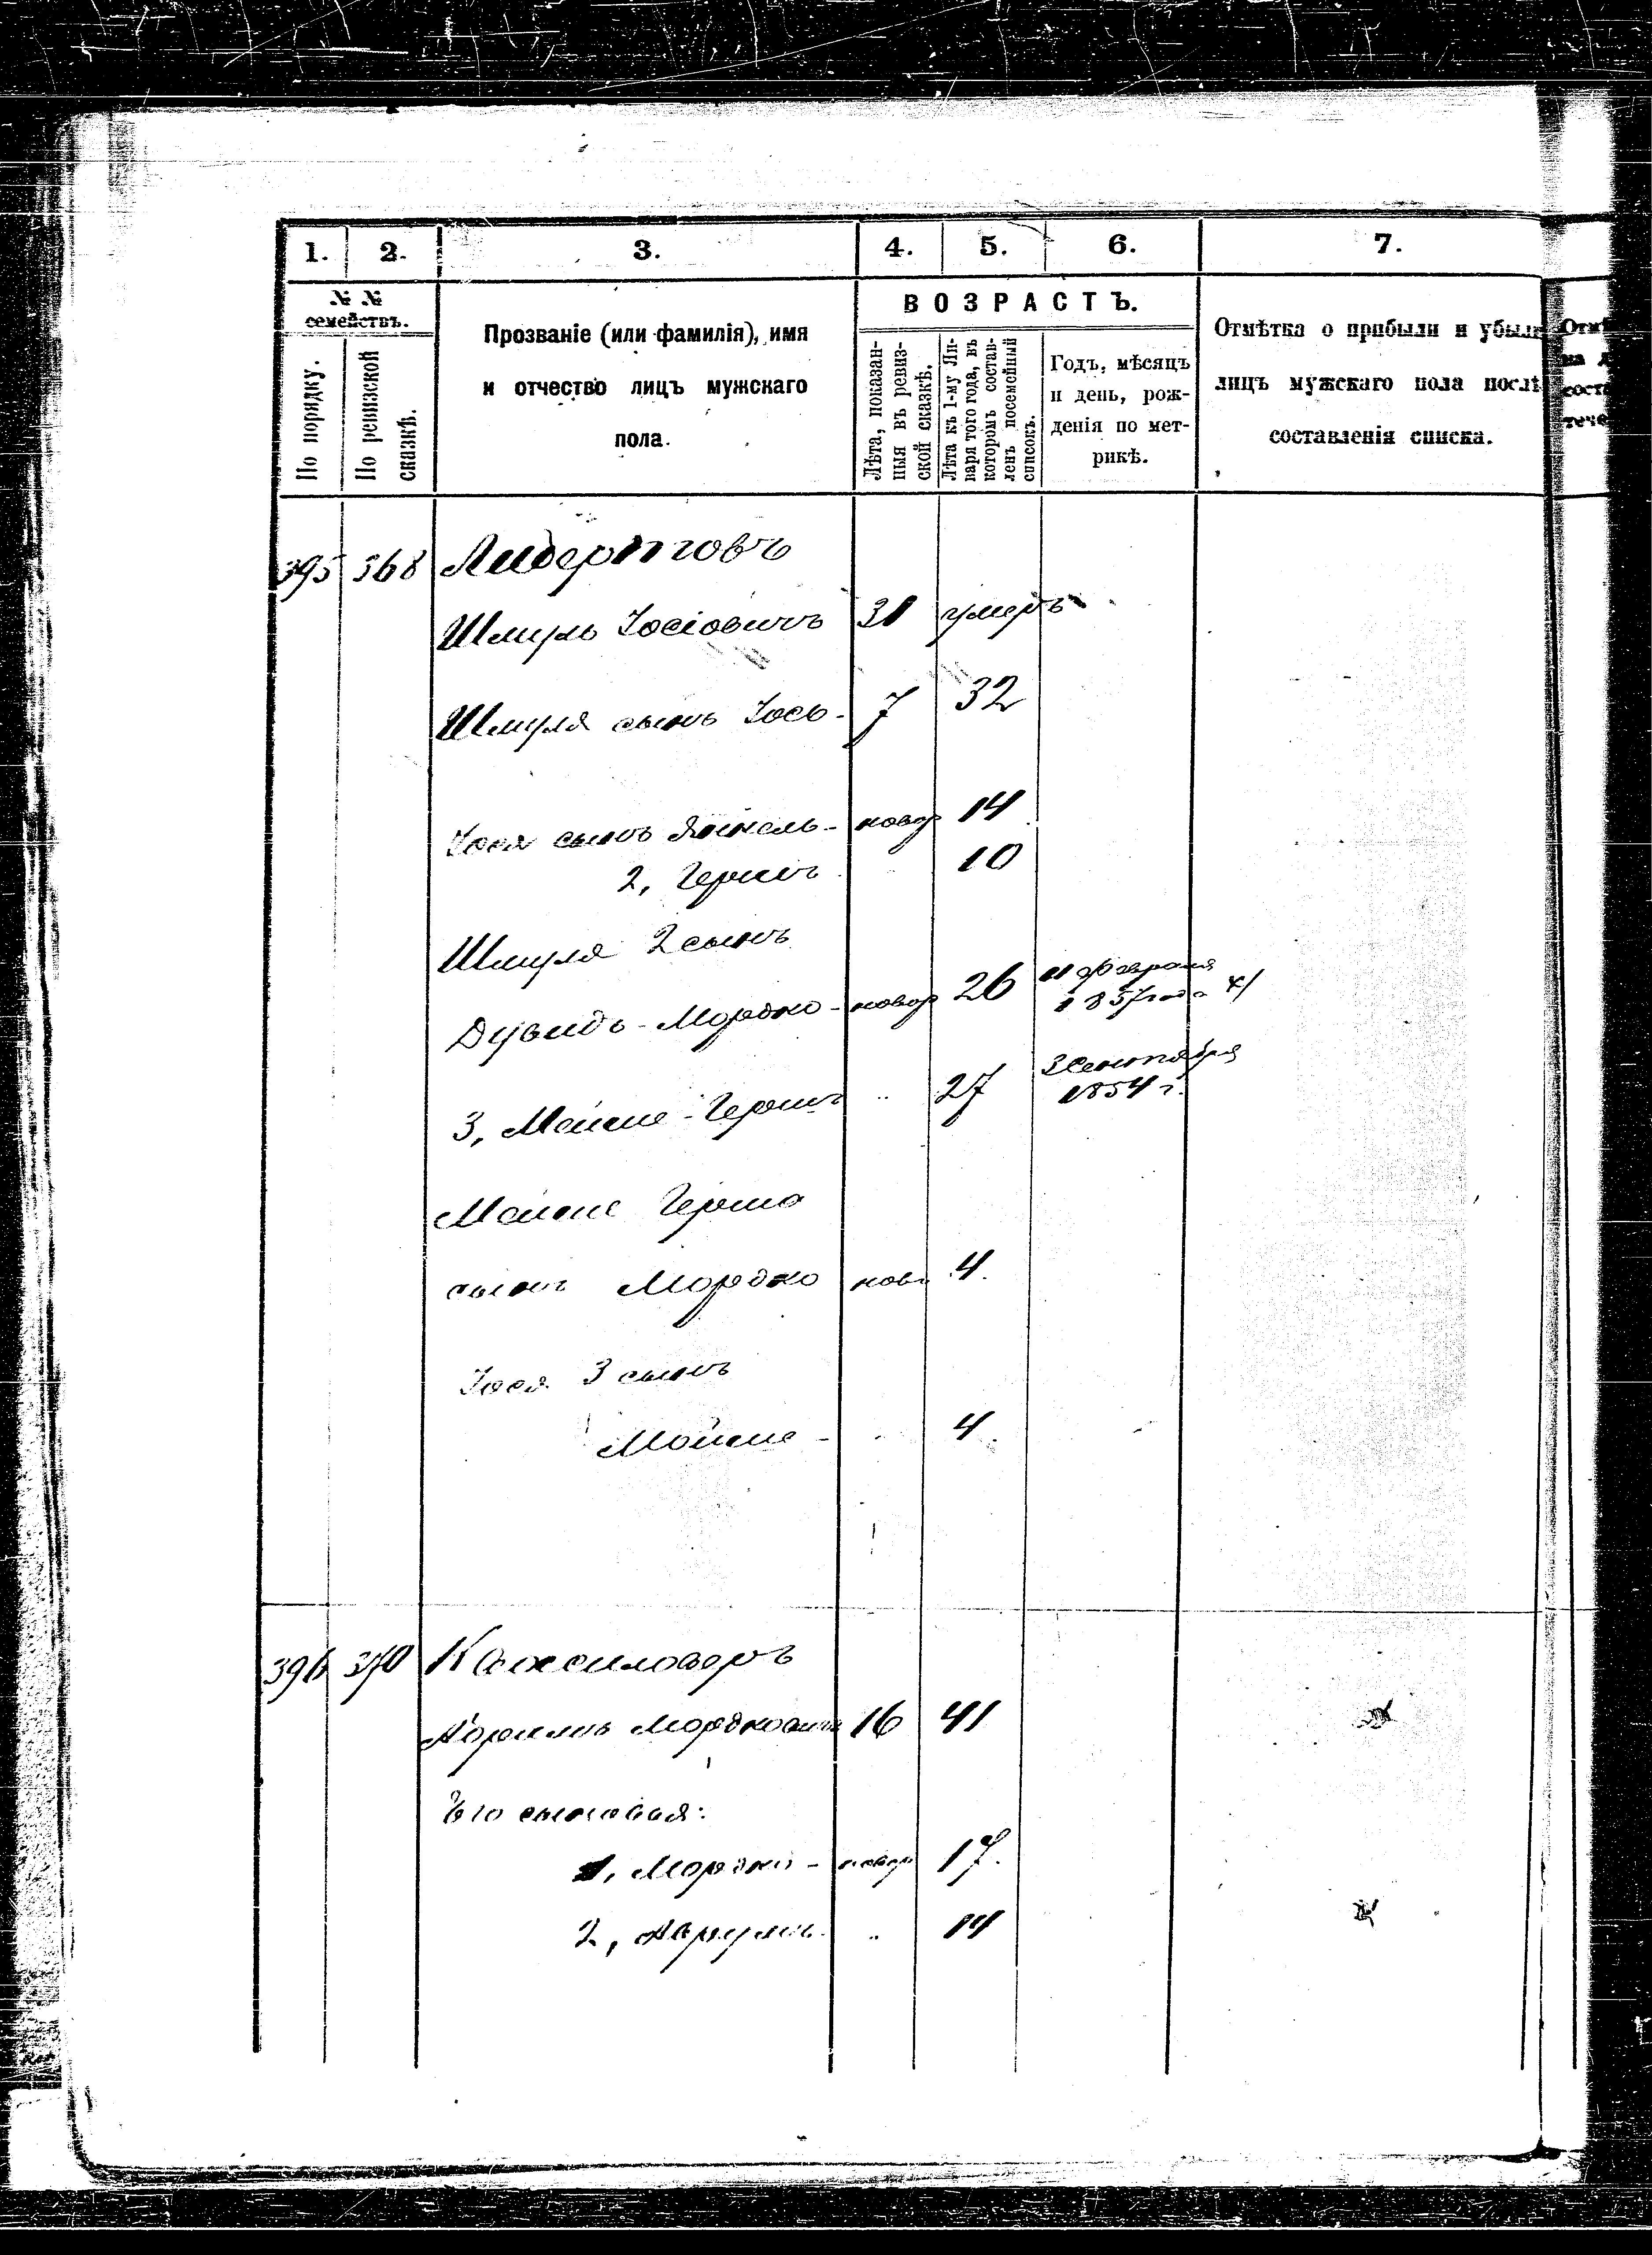 1. 2. 3. 4. 5. 6. 7.
№ №
семействъ.
По порядку.
По ревизской
сказкѣ.
Прозваніе (или фамилія), имя
и отчество лицъ мужскаго
пола.
ВОЗРАСТЪ.
Лѣта, показан-
ныя въ ревиз-
ской сказкѣ.
Лѣта къ 1-му Ян-
варя того года, въ
которомъ состав-
ленъ посемейный
списокъ.
Годъ, мѣсяцъ
и день, рож-
денія по мет-
рикѣ.
Отмѣтка о прибыли и убыли
лицъ мужскаго пола послѣ
составленія списка.
395 368
Шмуль Іосіовичъ 31 умеръ
Шмуля сынъ Іось - 7 32
Іося сынъ Янкель - новор 14
2, Гершъ 10
Шмуля 2 сынъ
Дувидъ - Мордко - новор 26 11 февраля
1857 года
3, Мойше - Гершъ " 27 3 Сентября
1854 г.
Мойше Герша
сынъ Мордко нов 4.
Іося 3 сынъ
Мойше - " 4.
396 370
Абрамъ Мордковичъ 16 41
Его сыновья:
1, Мордко - новор 17.
2, " 14